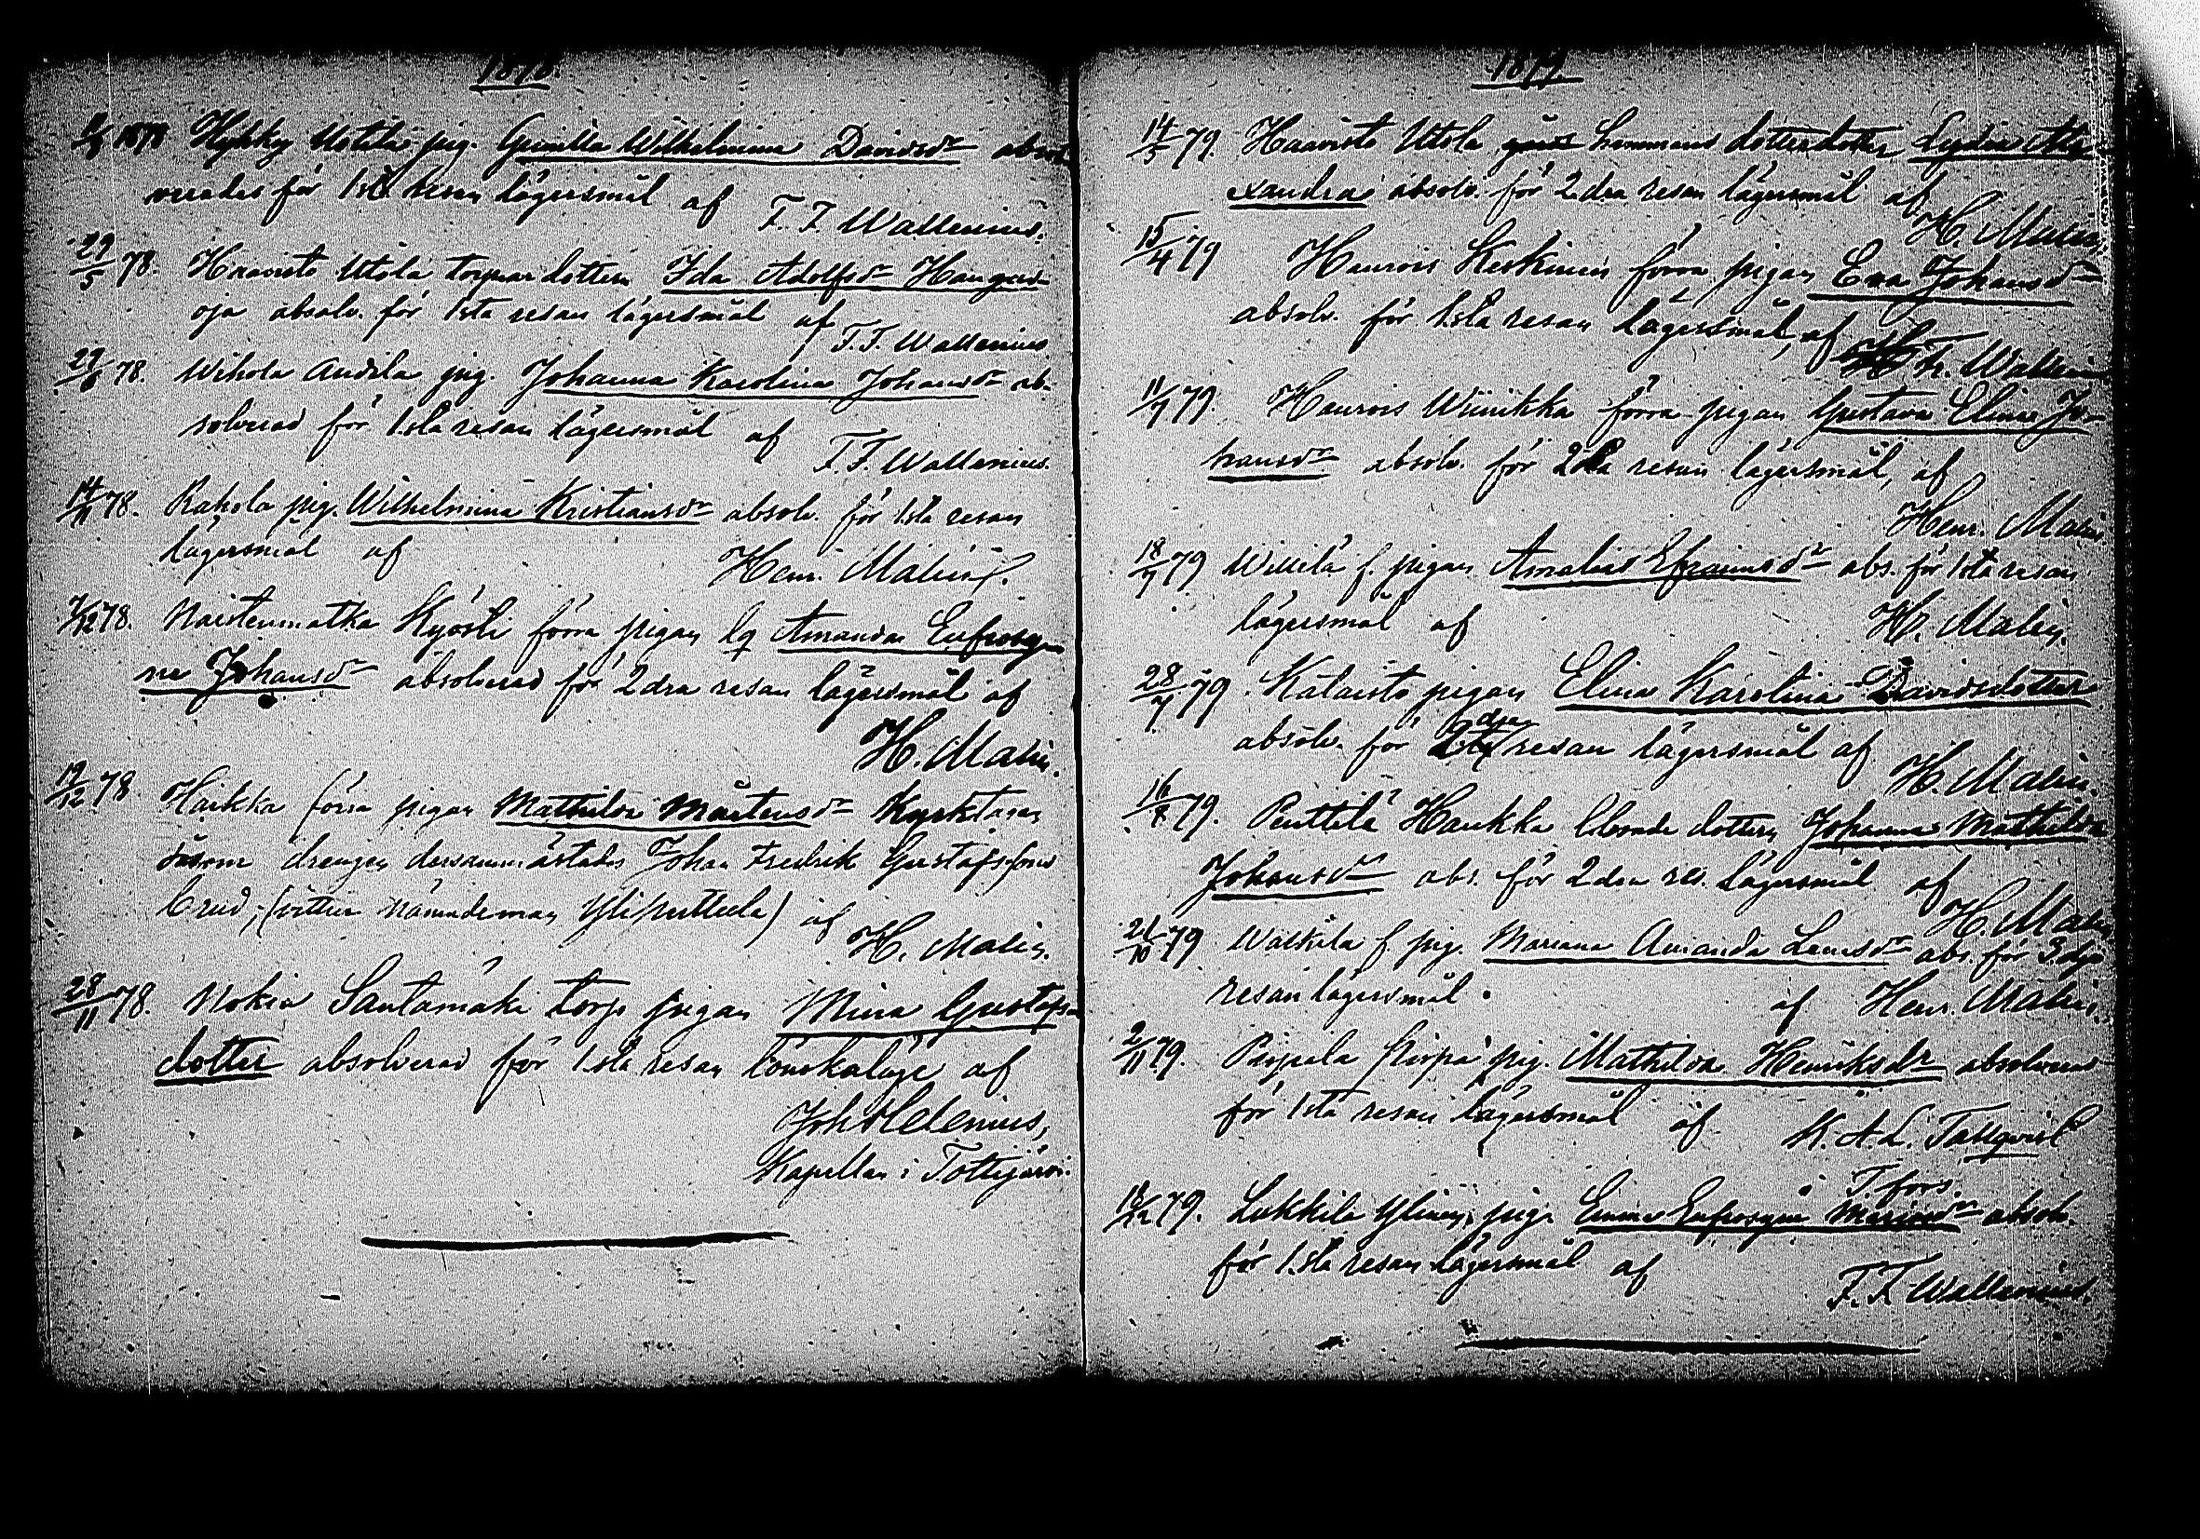 1878.
1878 Hykky Uotila pig. Gunilla Wilhelmina Davidsdr absol-
verades för 1sta resan lägersmål af
F. F. Wallenius.
29/5 78. Haavisto Utola torpare dottern Ida Adolfsdr
oja absolv. för 1sta resan lägersmål af
F. F. Wallenius
78. Wihola Andila pig. Johanna Karolina Johansdr ab-
solverad för 1sta resan lägersmål af
F. F. Wallenius.
14/11 78. Rahola pig. Wilhelmina Kristiansdr absolv. för 1sta resan
lägersmål af
Henr. Malin.
7/12 78. Naistenmatka Kyösti förra pigan Amanda Eufrosy-
ne Johansdr absolverad för 2dra resan lägersmål af
H. Malin.
19/12 78 Haikka förra pigan Mathilda Mårtensdr Kyrktagen
såsom drengen dersammastädes Johan Fredrik Gustafssons
brud, (vittne nämndeman Ylipenttila) af
H. Malin.
28/11 78. Nokia Santamäki torp pigan Mina Gustafs-
dotter absolverad för 1sta resan lönskaläge af
Joh Helenius,
Kapellan i Tottijärvi.
1879
14/3 79. Haavisto Utola hemmans dotterdotter Lydia Ale-
xandra absolv. för 2dra resan lägersmål af
H. Malin
15/4 79 Haurois Keskinen förra pigan Eva Johansdr
absolv. för 1sta resan lägersmål, af
Wallenius
11/7 79. Haurois Wiinikka förra pigan Gustava Elina Jo-
hansdr absolv. för 2dra resan lägersmål, af
Henr. Malin
18/7 79 Willilä f. pigan Amalia Efraimsdr abs. för 1sta resan
lägersmål af
H. Malin.
28/7 79 Kalaisto pigan Elina Karolina Davidsdotter
absolv. för dra resan lägersmål af
H. Malin.
79. Penttilä Haukka bonde dottern Johanna Mathilda
Johansdr abs. för 2dra res. lägersmål af
H. Malin
21/10 79 Walkila f. pig. Mariana Amanda dr abs. för 3dje
resan lägersmål. af Henr. Malin.
2/11 79. Pirpa pig. Mathilda Henriksdr absolverad
för 1sta resan lägersmål af K. A. L. Tallqvist
T.fors
79. Lukkila Ylinen pig. Emma Eufrosyna dr absolv.
för 1sta resan lägersmål af
F. F. Wallenius.